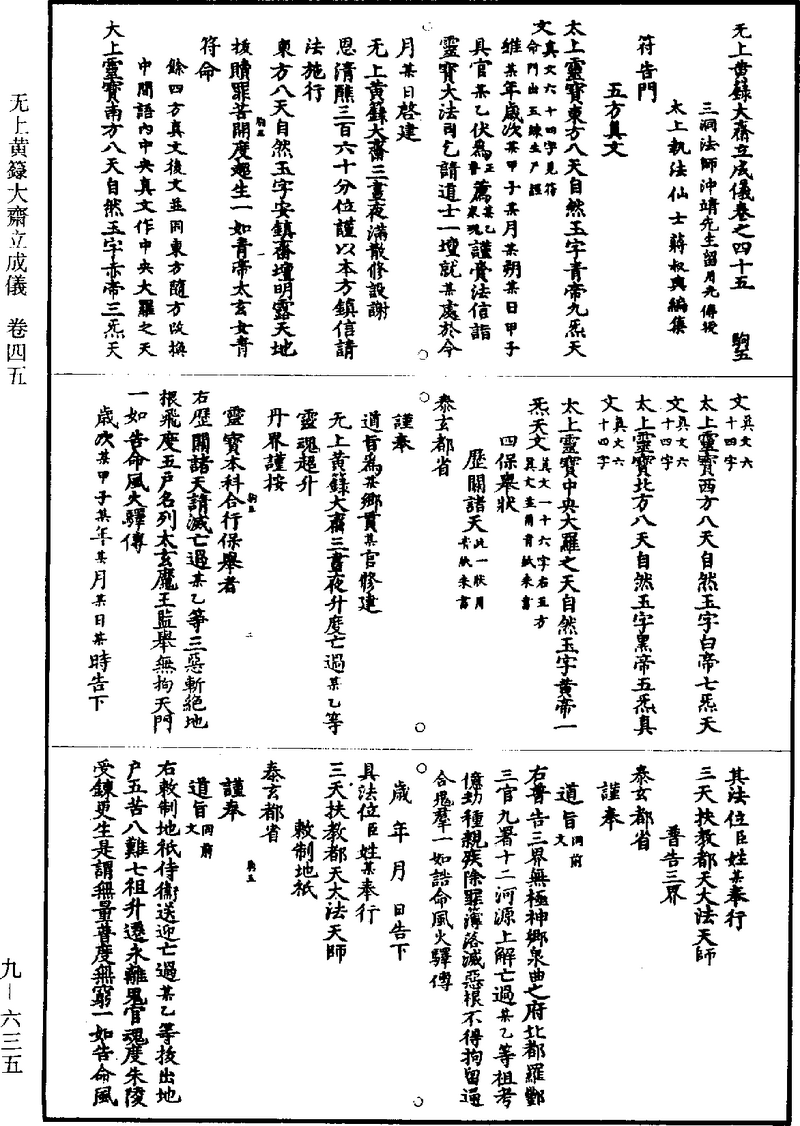 无上黄籙大齋立成儀卷之四十五 駒五
三洞法師沖靖先生留用光傳授
太上執法仙士蔣叔輿編集
符告門
五方真文
太上靈寶東方八天自然玉字青帝九炁天
文真文六十四字見符命門出五鍊生尸證
維某年歲次某甲子某月某朔某日甲子
具官某乙伏爲薦某乙謹賫法信詣
靈寶大法司乞請道士一壇就某處於今
月某日啓建
无上黄籙大齋三晝夜滿散修設謝
恩清醮三百六十分位謹以本方鎮信請
法施行
東方八天自然玉字安鎮齋壇明露天地
拔贖罪苦開度超生一如青帝太玄女青
符命
餘四方真文後文並同東方隨方改換
中間語內中央真文作中央大羅之天
太上靈寶南方八天自然玉字赤帝三炁天
文真文六十四字
太上靈寶西方八天自然玉字白帝七炁天
文真文六十四字
太上靈寶北方八天自然玉字黑帝五炁真
文真文六十四字
太上靈寶中央大羅之天自然玉字黄帝一
炁天文真文一十六字右五方真文並用青紙朱書
四保舉狀
歷關諸天此一狀用青紙朱書
泰玄都省
謹奉
道旨爲某鄉貫某官修建
无上黄籙大齋三晝夜升度亡過某乙等
靈魂超升
丹界謹按
靈寶本科合行保舉者
右歷關諸天請滅亡過某乙等三惡斬絶地
根飛度五戶名列太玄魔王監舉無拘天門
一如告命風火驛傳
歲次某甲子某年某月某日某時告下
具法位臣姓某奉行
三天扶教都天大法天師
普告三界
泰玄都省
謹奉
道旨同前文
右普告三界無極神鄉泉曲之府北都羅酆
三官九署十二河源上解亡過某乙等祖考
億劫種親疾除罪簿落滅惡根不得拘留逼
合鬼羣一如誥命風火驛傳
歲 年 月 日告下
具法位臣姓某奉行
三天扶教都天大法天師
敕制地祇
泰玄都省
謹奉
道旨同前文
右敕制地祇侍衛送迎亡過某乙等拔出地
戶五苦八難七祖升遷永離鬼官魂度朱陵
受鍊更生是謂無量普度無窮一如告命風
无上黄籙大齋立成儀 卷四五
九—六三五